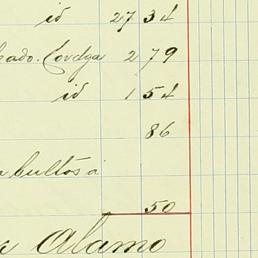 id 27 34
ado. Cordga 2 79
id 1 54
86
bultos á
50
Alamo